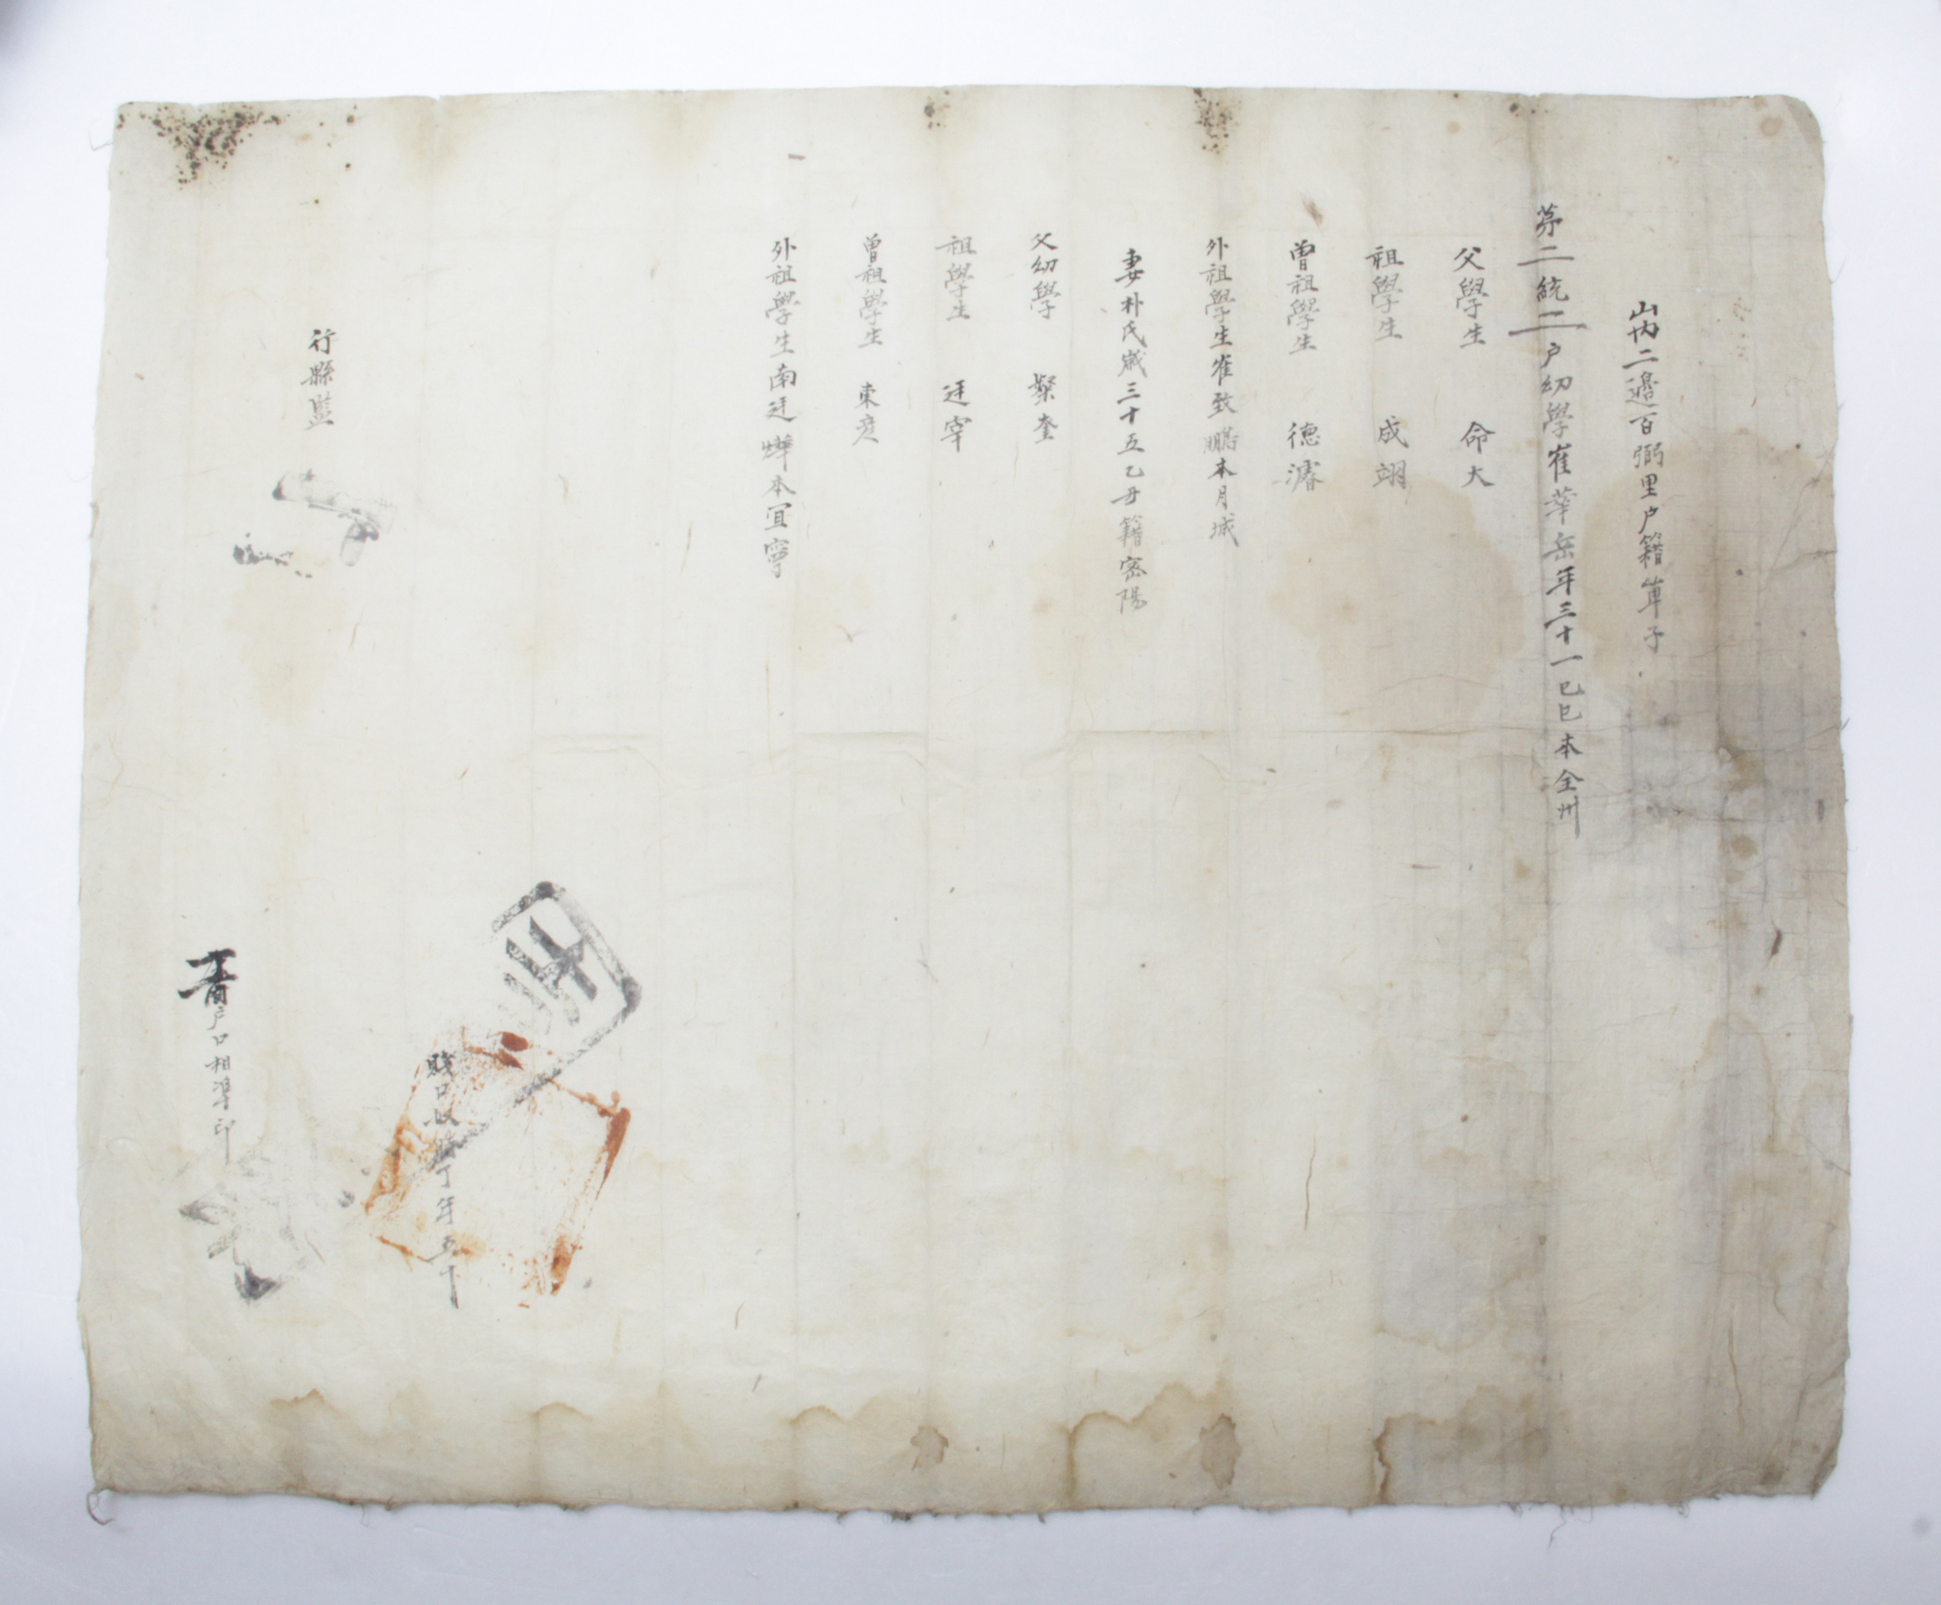 山內二邊百弼里户籍單子
苐二統二户幼學崔華岳年三十一己巳本全州
父學生 命大
祖學生 成翊
曾祖學生 德濬
外祖學生崔致鵬本月城
妻朴氏歲三十五乙丑籍密陽
父幼學 粲奎
祖學生 廷宰
曾祖學生 東彦
外祖學生南廷燁本宜寧
賤口奴 丁年五十
行縣監
户口相準印